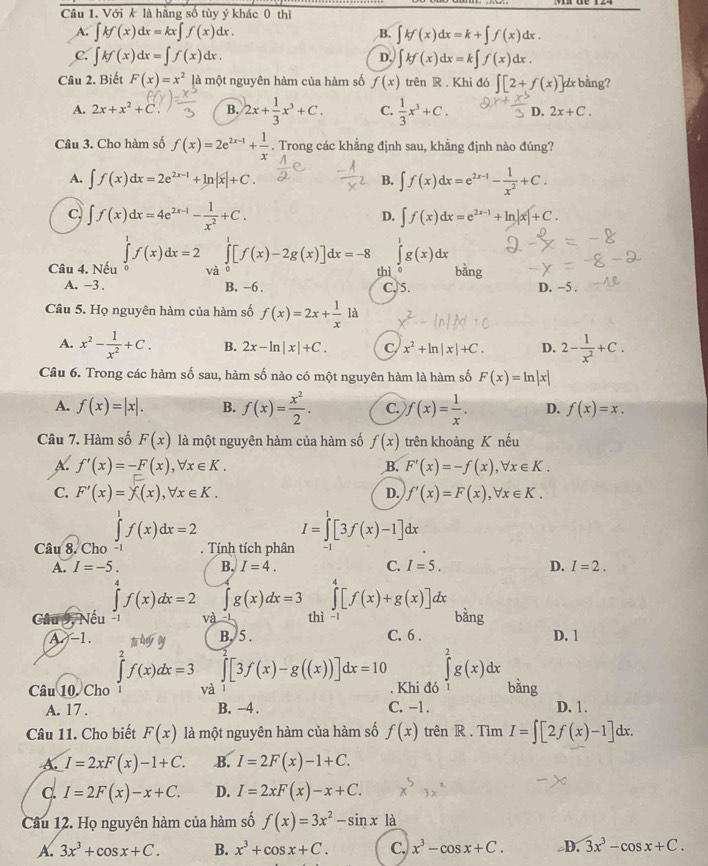 Mã đề 124
Câu 1. Với k là hằng số tùy ý khác 0 thì
A. ∫kf(x)dx = kx∫f(x)dx. B. ∫kf(x)dx = k + ∫f(x)dx.
C. ∫kf(x)dx = ∫f(x)dx. D. ∫kf(x)dx = k∫f(x)dx.
Câu 2. Biết F(x) = x² là một nguyên hàm của hàm số f(x) trên ℝ. Khi đó ∫[2+f(x)]dx bằng?
A. 2x + x² + C. B. 2x + 1/3 x³ + C. C. 1/3 x³ + C. D. 2x + C.
Câu 3. Cho hàm số f(x) = 2e^(2x−1) + 1/x. Trong các khẳng định sau, khẳng định nào đúng?
A. ∫f(x)dx = 2e^(2x−1) + ln|x| + C. B. ∫f(x)dx = e^(2x−1) − 1/x² + C.
C. ∫f(x)dx = 4e^(2x−1) − 1/x² + C. D. ∫f(x)dx = e^(2x−1) + ln|x| + C.
Câu 4. Nếu ∫₀¹ f(x)dx = 2 và ∫₀¹ [f(x) − 2g(x)]dx = −8 thì ∫₀¹ g(x)dx bằng
2 − x = −8
−x = −8 − 2
A. −3. B. −6. C. 5. D. −5. −10
Câu 5. Họ nguyên hàm của hàm số f(x) = 2x + 1/x là
A. x² − 1/x² + C. B. 2x − ln|x| + C. C. x² + ln|x| + C. D. 2 − 1/x² + C.
Câu 6. Trong các hàm số sau, hàm số nào có một nguyên hàm là hàm số F(x) = ln|x|
A. f(x) = |x|. B. f(x) = x²/2. C. f(x) = 1/x. D. f(x) = x.
Câu 7. Hàm số F(x) là một nguyên hàm của hàm số f(x) trên khoảng K nếu
A. f'(x) = −F(x), ∀x ∈ K. B. F'(x) = −f(x), ∀x ∈ K.
C. F'(x) = f(x), ∀x ∈ K. D. f'(x) = F(x), ∀x ∈ K.
Câu 8. Cho ∫₋₁¹ f(x)dx = 2. Tính tích phân I = ∫₋₁¹ [3f(x) − 1]dx
A. I = −5. B. I = 4. C. I = 5. D. I = 2.
Câu 9. Nếu ∫₋₁⁴ f(x)dx = 2 và ∫₋₁⁴ g(x)dx = 3 thì ∫₋₁⁴ [f(x) + g(x)]dx bằng
A. −1. B. 5. C. 6. D. 1
Câu 10. Cho ∫₁² f(x)dx = 3 và ∫₁² [3f(x) − g((x))]dx = 10. Khi đó ∫₁² g(x)dx bằng
A. 17. B. −4. C. −1. D. 1.
Câu 11. Cho biết F(x) là một nguyên hàm của hàm số f(x) trên ℝ. Tìm I = ∫[2f(x) − 1]dx.
A. I = 2xF(x) − 1 + C. B. I = 2F(x) − 1 + C.
C. I = 2F(x) − x + C. D. I = 2xF(x) − x + C.
Câu 12. Họ nguyên hàm của hàm số f(x) = 3x² − sin x là
A. 3x³ + cos x + C. B. x³ + cos x + C. C. x³ − cos x + C. D. 3x³ − cos x + C.